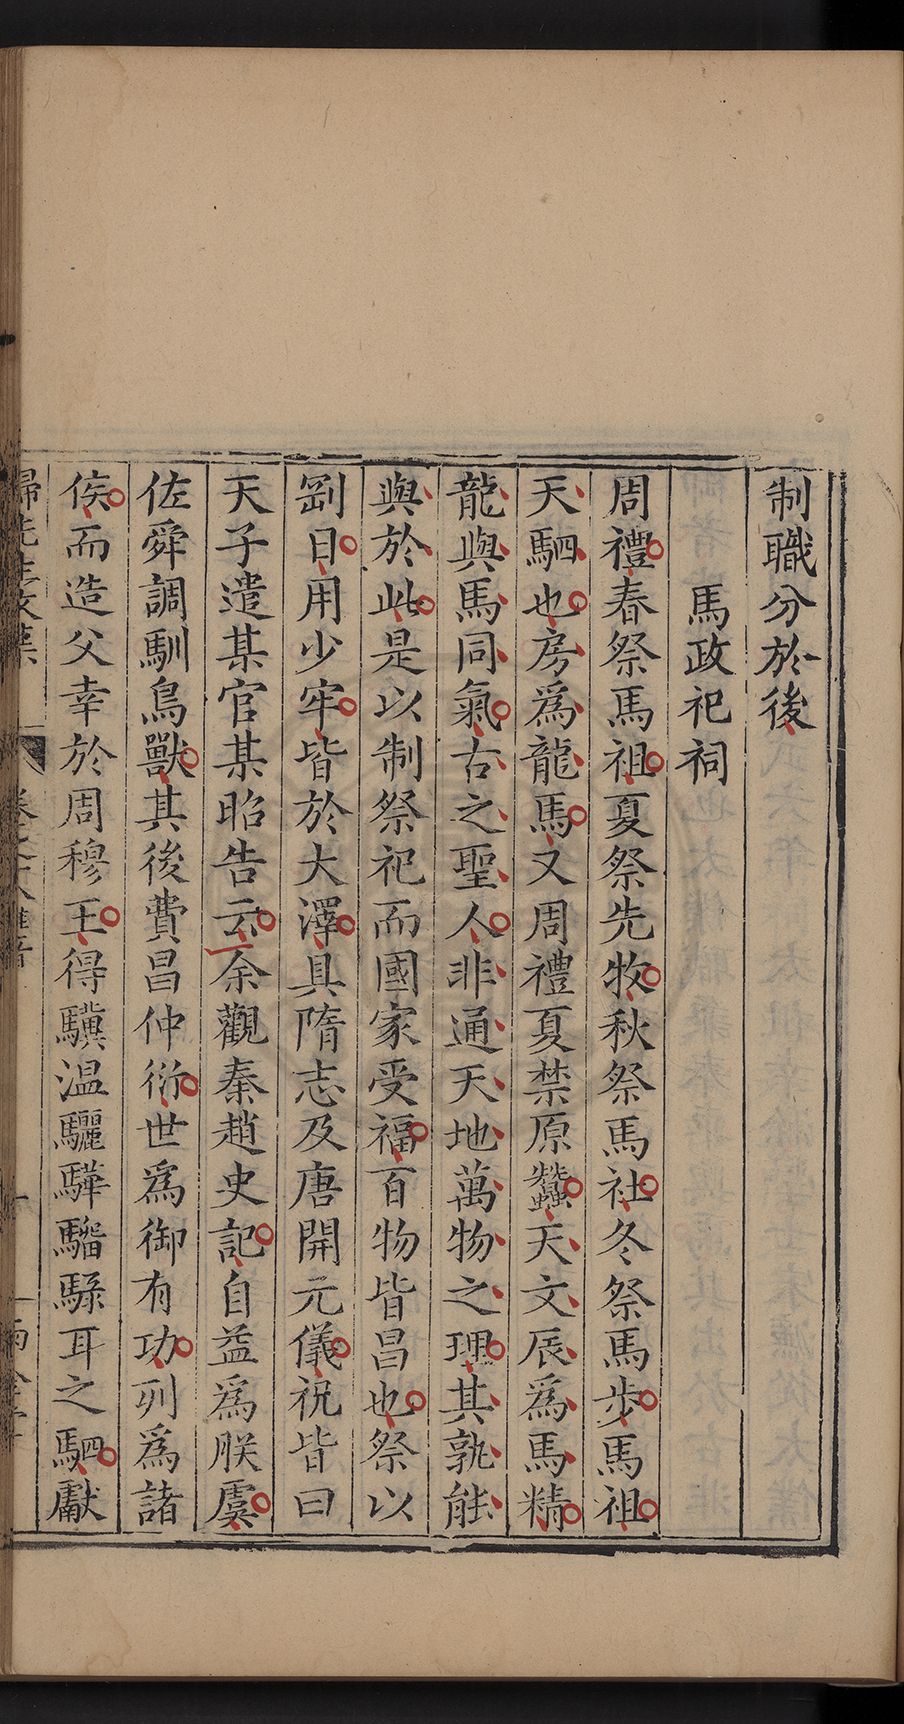 制職分於後
馬政祀祠
周禮春祭馬祖夏祭先牧秋祭馬社冬祭馬步馬祖
天駟也房爲龍馬又周禮夏禁原蠶天文辰爲馬精
龍與馬同氣古之聖人非通天地萬物之理其孰能
與於此是以制祭祀而國家受福百物皆昌也祭以
剛日用少牢皆於大澤具隋志及唐開元儀祝皆曰
天子遣某官某昭告云余觀秦趙史記自益爲朕虞
佐舜調馴鳥獸其後費昌仲衍世爲御有功列爲諸
侯而造父幸於周穆王得驥温驪驊騮騄耳之駟獻